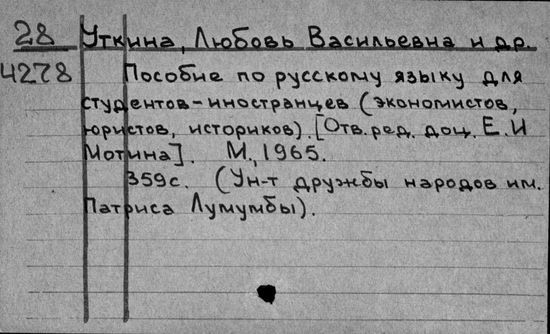 28 Уткина, Любовь Васильевна и др.
4278 Пособие по русскому языку для
студентов-иностранцев (экономистов,
юристов, историков). [Отв. ред. доц. Е. И
Мотина]. М., 1965.
359с. (Ун-т дружбы народов им.
Патриса Лумумбы).